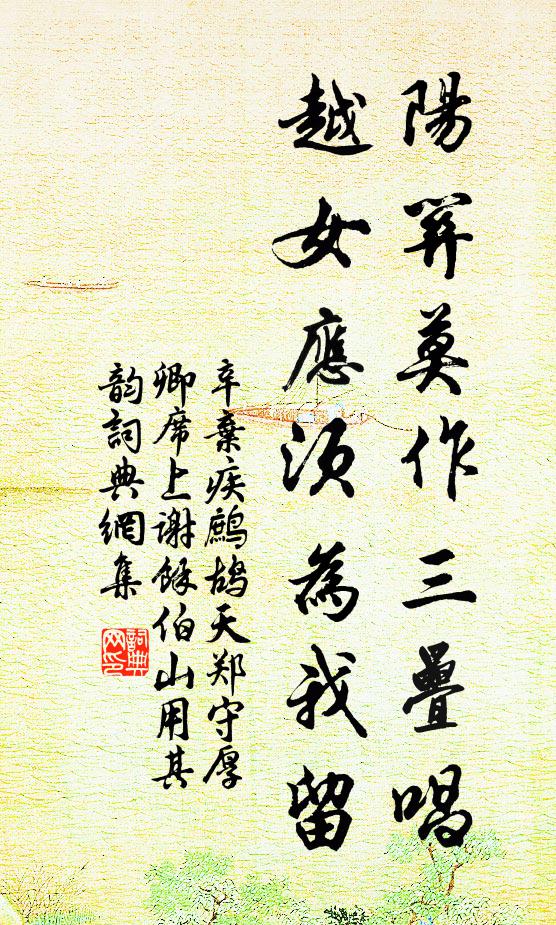 陽關莫作三疊唱
越女應須為我留
辛棄疾鷓鴣天鄭守厚
卿席上謝餘伯山用其
韵詞典網集
詞典网印